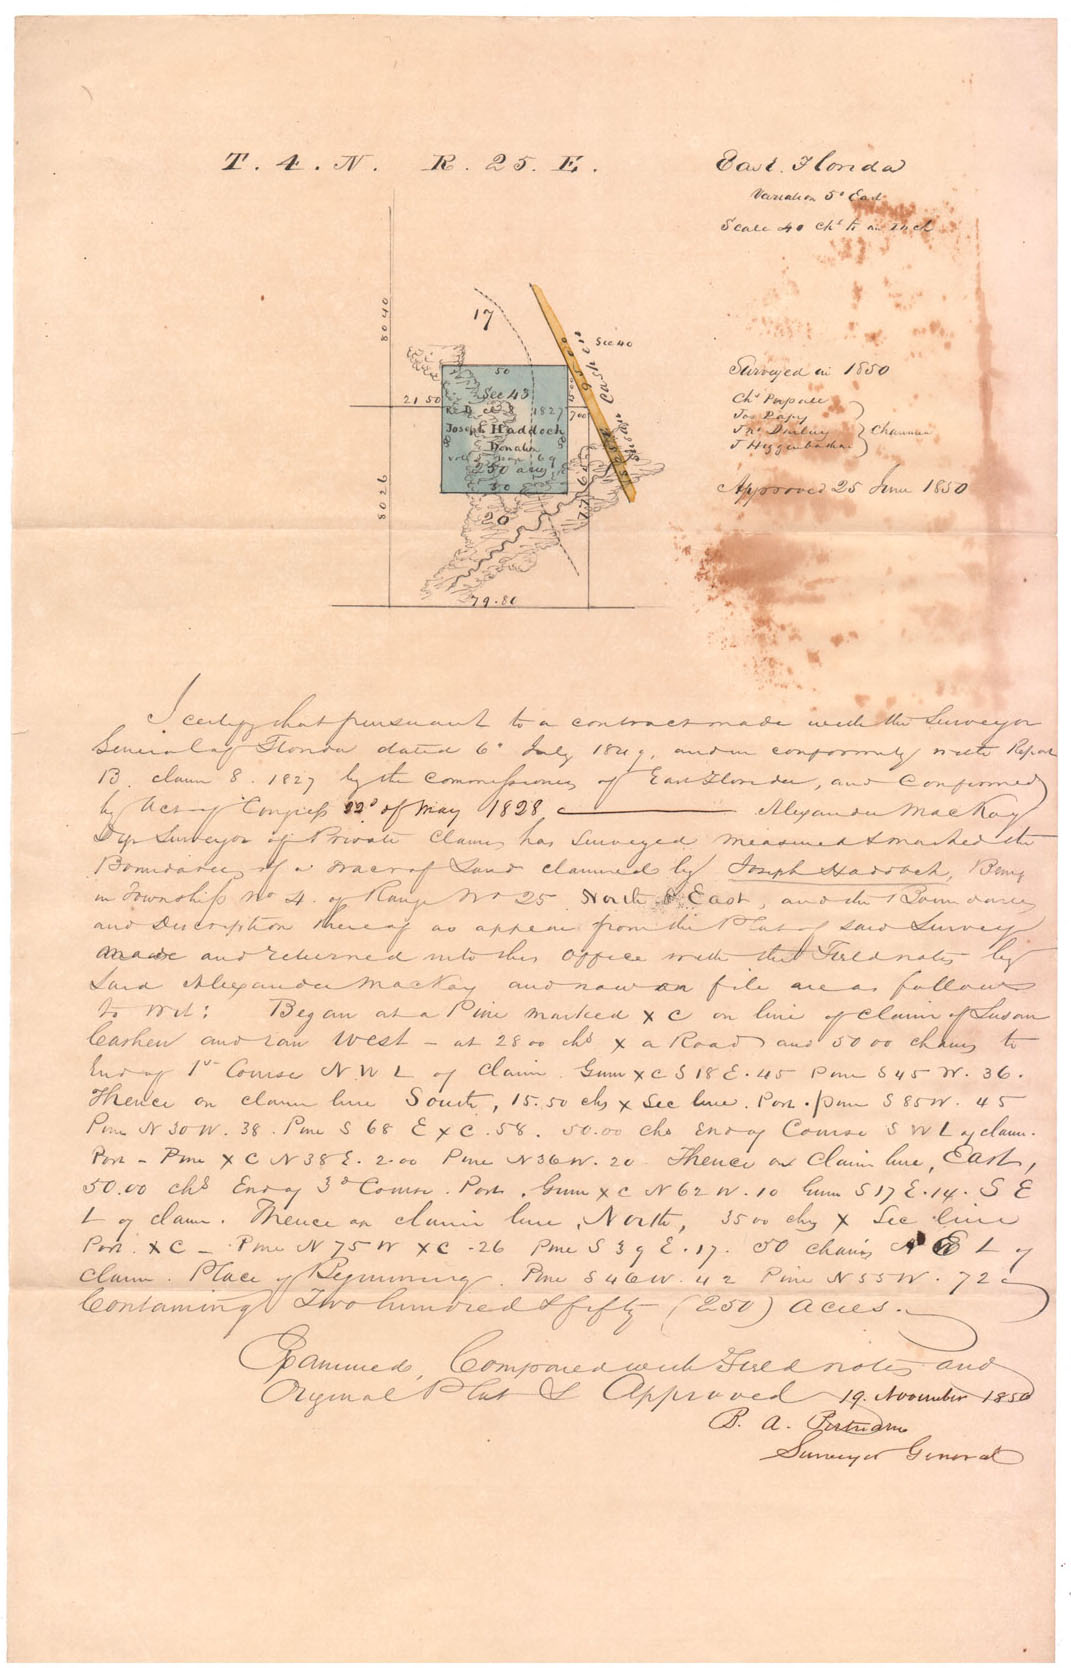 T. 4. N. R. 25. E.
East. Florida
Variation 5° East
Scale 40 chs to an inch
80 40
17
Sec 40
50
Surveyed in 1850
Sec 43
21 50
Rep. B cl 8 1827
7 00
Chs Papalle
Jos Papy
Joseph Haddock
Chainmen
Donation
J Higginbotham
250 acres
50
Approved 25 June 1850
80 26
20
79.80
I certify that pursuant to a contract made with the Surveyor
General of Florida dated 6th July 1849, and in conformity with Report
B. claim 8. 1827 by the Commissioners of East Florida, and Confirmed
by Act of Congress 22d of May 1828, Alexander MacKay
Dep Surveyor of Private Claims has Surveyed measured & marked the
Boundaries of a tract of Land claimed by Joseph Haddock, Being
in Township No 4. of Range No 25 North & East, and the Boundaries
and Description thereof as appear from the Plat of said Survey
made and returned into this office with the Field notes by
Said Alexander MacKay and now on file are as follows
to wit: Began at a Pine marked x C on line of claim of Susan
Cashen and ran West – at 28 00 chs x a Road and 50 00 chains to
End of 1st Course N W L of claim. Gum x C S 18 E. 45 Pine S 45 W. 36.
Thence on claim line South, 15.50 chs x Sec line. Post. pine S 85 W. 45
Pine N 30 W. 38. Pine S 68 E x C. 58. 50.00 chs End of Course S W L of claim.
Post – Pine x C N 38 E. 2.00 Pine N 36 W. 20 Thence on Claim line, East,
50.00 chs End of 3d Course. Post. Gum x C N 62 W. 10 Gum S 17 E. 14. S E
L of claim. Thence on claim line, North, 35 00 chs x Sec line
Post. x C – Pine N 75 W x C. 26 Pine S 39 E. 17. 50 chains N E L of
claim. Place of Beginning. Pine S 46 W. 42 Pine N 55 W. 72
Containing Two hundred & fifty (250) acres.
Examined, Compared with Field notes and
Original Plat & Approved 19. November 1850
B. A. Putnam
Surveyor General